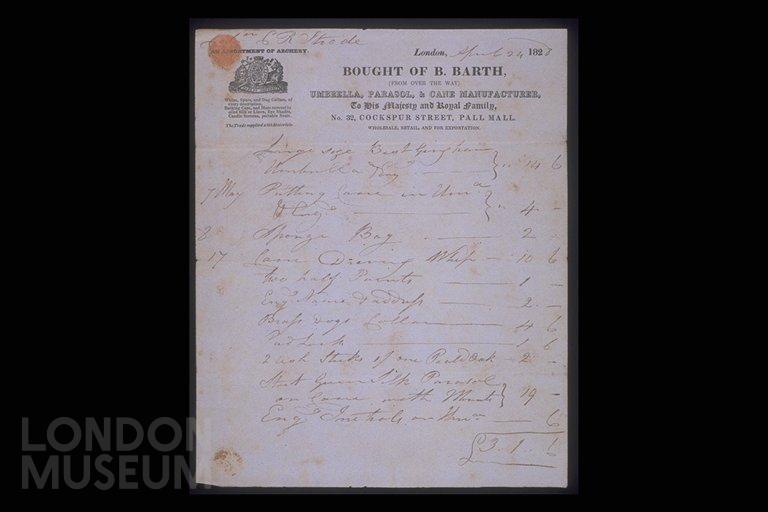 E R Strode
AN ASSORTMENT OF ARCHERY.
London, April 24 1828
BOUGHT OF B. BARTH,
(FROM OVER THE WAY)
UMBRELLA, PARASOL, & CANE MANUFACTURER,
To His Majesty and Royal Family,
No. 32, COCKSPUR STREET, PALL MALL.
WHOLESALE, RETAIL, AND FOR EXPORTATION.
Whips, Spurs, and Dog Collars, of
every description.
Bathing Caps, and Hats covered in
oiled Silk or Linen, Eye Shades,
Candle Screens, portable Seats.
The Trade supplied with Materials.
Large size Best Gingham
Umbrella & Eng 14 6
7 May Putting Cane in Um
& Eng 4 -
8 Sponge Bag 2 -
17 Cane Driving Whip 10 6
two half Points 1 -
Eng Name & address 2 -
Brass dogs Collar 4 6
Padlock 1 6
2 ash Sticks & one Oak 2 -
Silk Parasol
on Cane with 19 -
Eng Initials on Um 6
£3.1.6
LONDON
MUSEUM